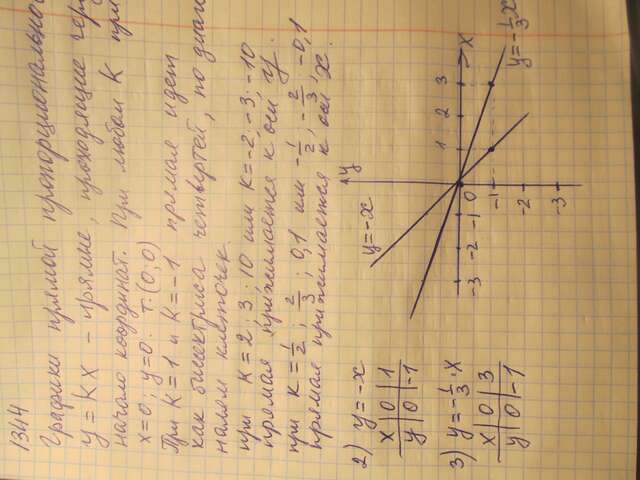 1344
Графики прямой пропорциональнос
y = kx - прямые, проходящие чер
начало координат. При любом k при
x=0; y=0. т.(0;0)
При k=1 и k=-1 прямая идет
как биссектриса четвертей, по диаго
налям клеточек.
при k=2; 3; 10 или k=-2; -3; -10
прямая прижимается к оси y.
при k=1/2; 2/3; 0,1 или -1/2; -2/3; -0,1
прямая прижимается к оси x.
2) y=-x
x | 0 | 1
y | 0 | -1
3) y=-1/3·x
x | 0 | 3
y | 0 | -1
y
y=-x
-3 -2 -1 0 1 2 3 x
-1
-2
-3
y=-1/3x